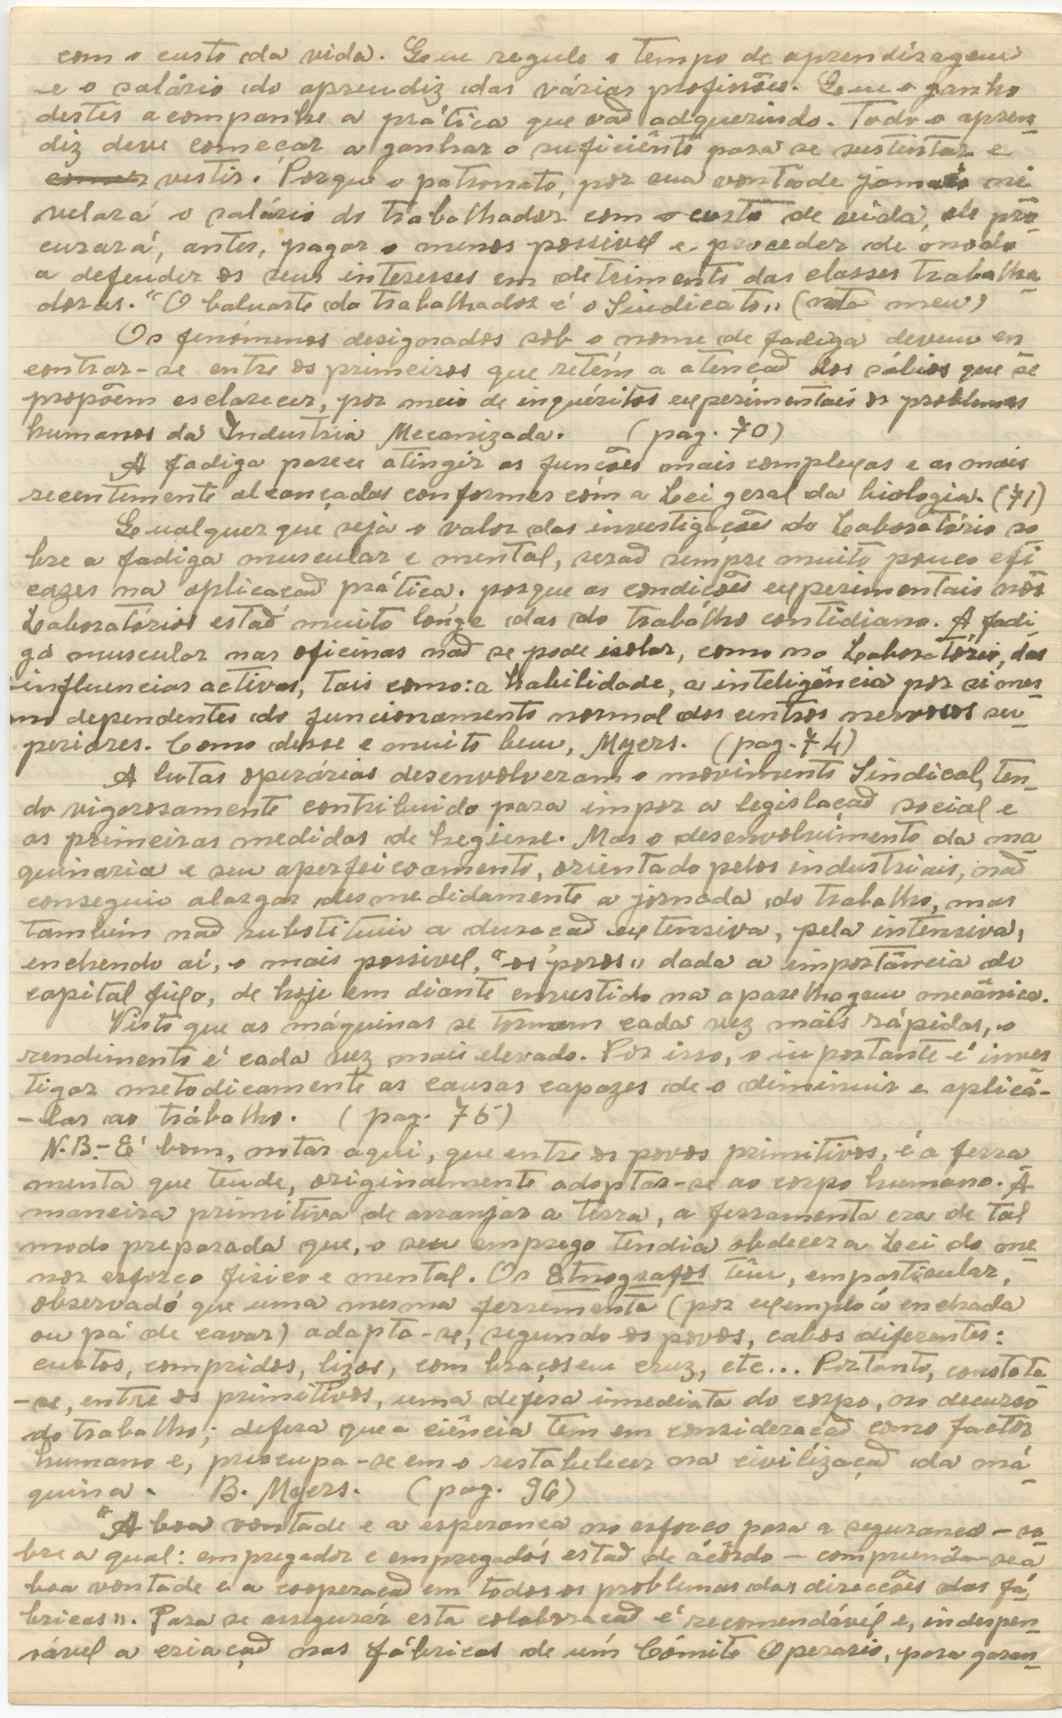 com o custo da vida. Que regule o tempo de aprendizagem
e o salário do aprendiz das várias profisões. Que o ganho
destes acompanhe a prática que vaõ adquerindo. Todo o apren-
diz deve começar a ganhar o suficiênte para se sustentar e
comer vestir. Porque o patronato, por sua vontade jamais ni
velará o salário do trabalhador com o custo de vida, ele pro-
curará, antes, pagar o menos possivel e proceder de modo
a defender os seus interesses em detrimento das classes trabalha-
doras. "O baluarte do trabalhador é o Sindicato" (nota meu)
Os fenómenos designados sob o nome de fadiga devem en
contrar-se entre os primeiros que retém a atençaõ dos sábios que se
propoẽm esclarecer, por meio de inquéritos experimentais os problemas
humanos da Industria Mecanizada. (pag. 70)
A fadiga parece atingir as funcões mais complexas e as mais
recentemente alcançadas conformes com a Lei geral da biologia. (71)
Qualquer que seja o valor das investigações do Laboratório so
bre a fadiga muscular e mental, seraõ sempre muito pouco efi
cazes na aplicaçaõ prática. porque as condições experimentais nos
Laboratórios estaõ muito longe das do trabalho contidiano. A fadi
ga muscular nas oficinas naõ se pode isolar, como no Laboratório, das
influencias activas, tais como: a habilidade, a inteligência por si mes-
mo dependentes do funcionamento normal dos centros nervosos su-
periores. Como disse e muito bem, Myers. (pag. 74)
A lutas operárias desenvolveram o movimento Sindical, ten-
do vigorosamente contribuido para impor a legislaçaõ social e
as primeiras medidas de hegiene. Mas o desenvolvimento da ma-
quinaria e seu aperfeicoamento, orientado pelos industriais, naõ
conseguio alargar desmedidamente a jornada do trabalho, mas
também naõ substituiu a duraçaõ extensiva, pela intensiva,
enchendo aí, o mais possivel, "os poros" dada a importância do
capital fixo, de hoje em diante envestido na aparelhagem mecânica.
Visto que as máquinas se tornam cada vez mais rápidas, o
rendimento é cada vez mais elevado. Por isso, o importante é inves
tigar metodicamente as causas capazes de o diminuir e aplicá-
-las ao trabalho. (pag. 75)
N.B.- E' bom, notar aqui, que entre os povos primitivos, é a ferra
menta que tende, originamente adoptar-se ao corpo humano. A
maneira primitiva de arranjar a terra, a ferramenta era de tal
modo preparada que, o seu emprego tendia obdecer a Lei do me-
nor esforco fisico e mental. Os Etnografos têm, em particular,
observado que uma mesma ferrementa (por exemplo a enchada
ou pá de cavar) adapta-se, segundo os povos, cabos diferentes:
curtos, compridos, lizos, com braços em cruz, etc... Portanto, constata
-se, entre os primitivos, uma defesa imediata do corpo, no decurso
do trabalho; defesa que a ciência tem em consideraçaõ como factor
humano e, preocupa-se em o restabelecer na civilizaçaõ da má
quina. B. Myers. (pag. 96)
"A boa vontade e a esperanca no esforco para a seguranca - so
bre a qual: empregador e empregados estaõ de acôrdo - compreende-se a
boa vontade e a cooperaçaõ em todos os problemas das direcções das fá-
bricas". Para se assegurár esta colabroracaõ é recomendável e, indespen-
sável a criaçaõ nas fábricas de um Cómite Operario, para garan-